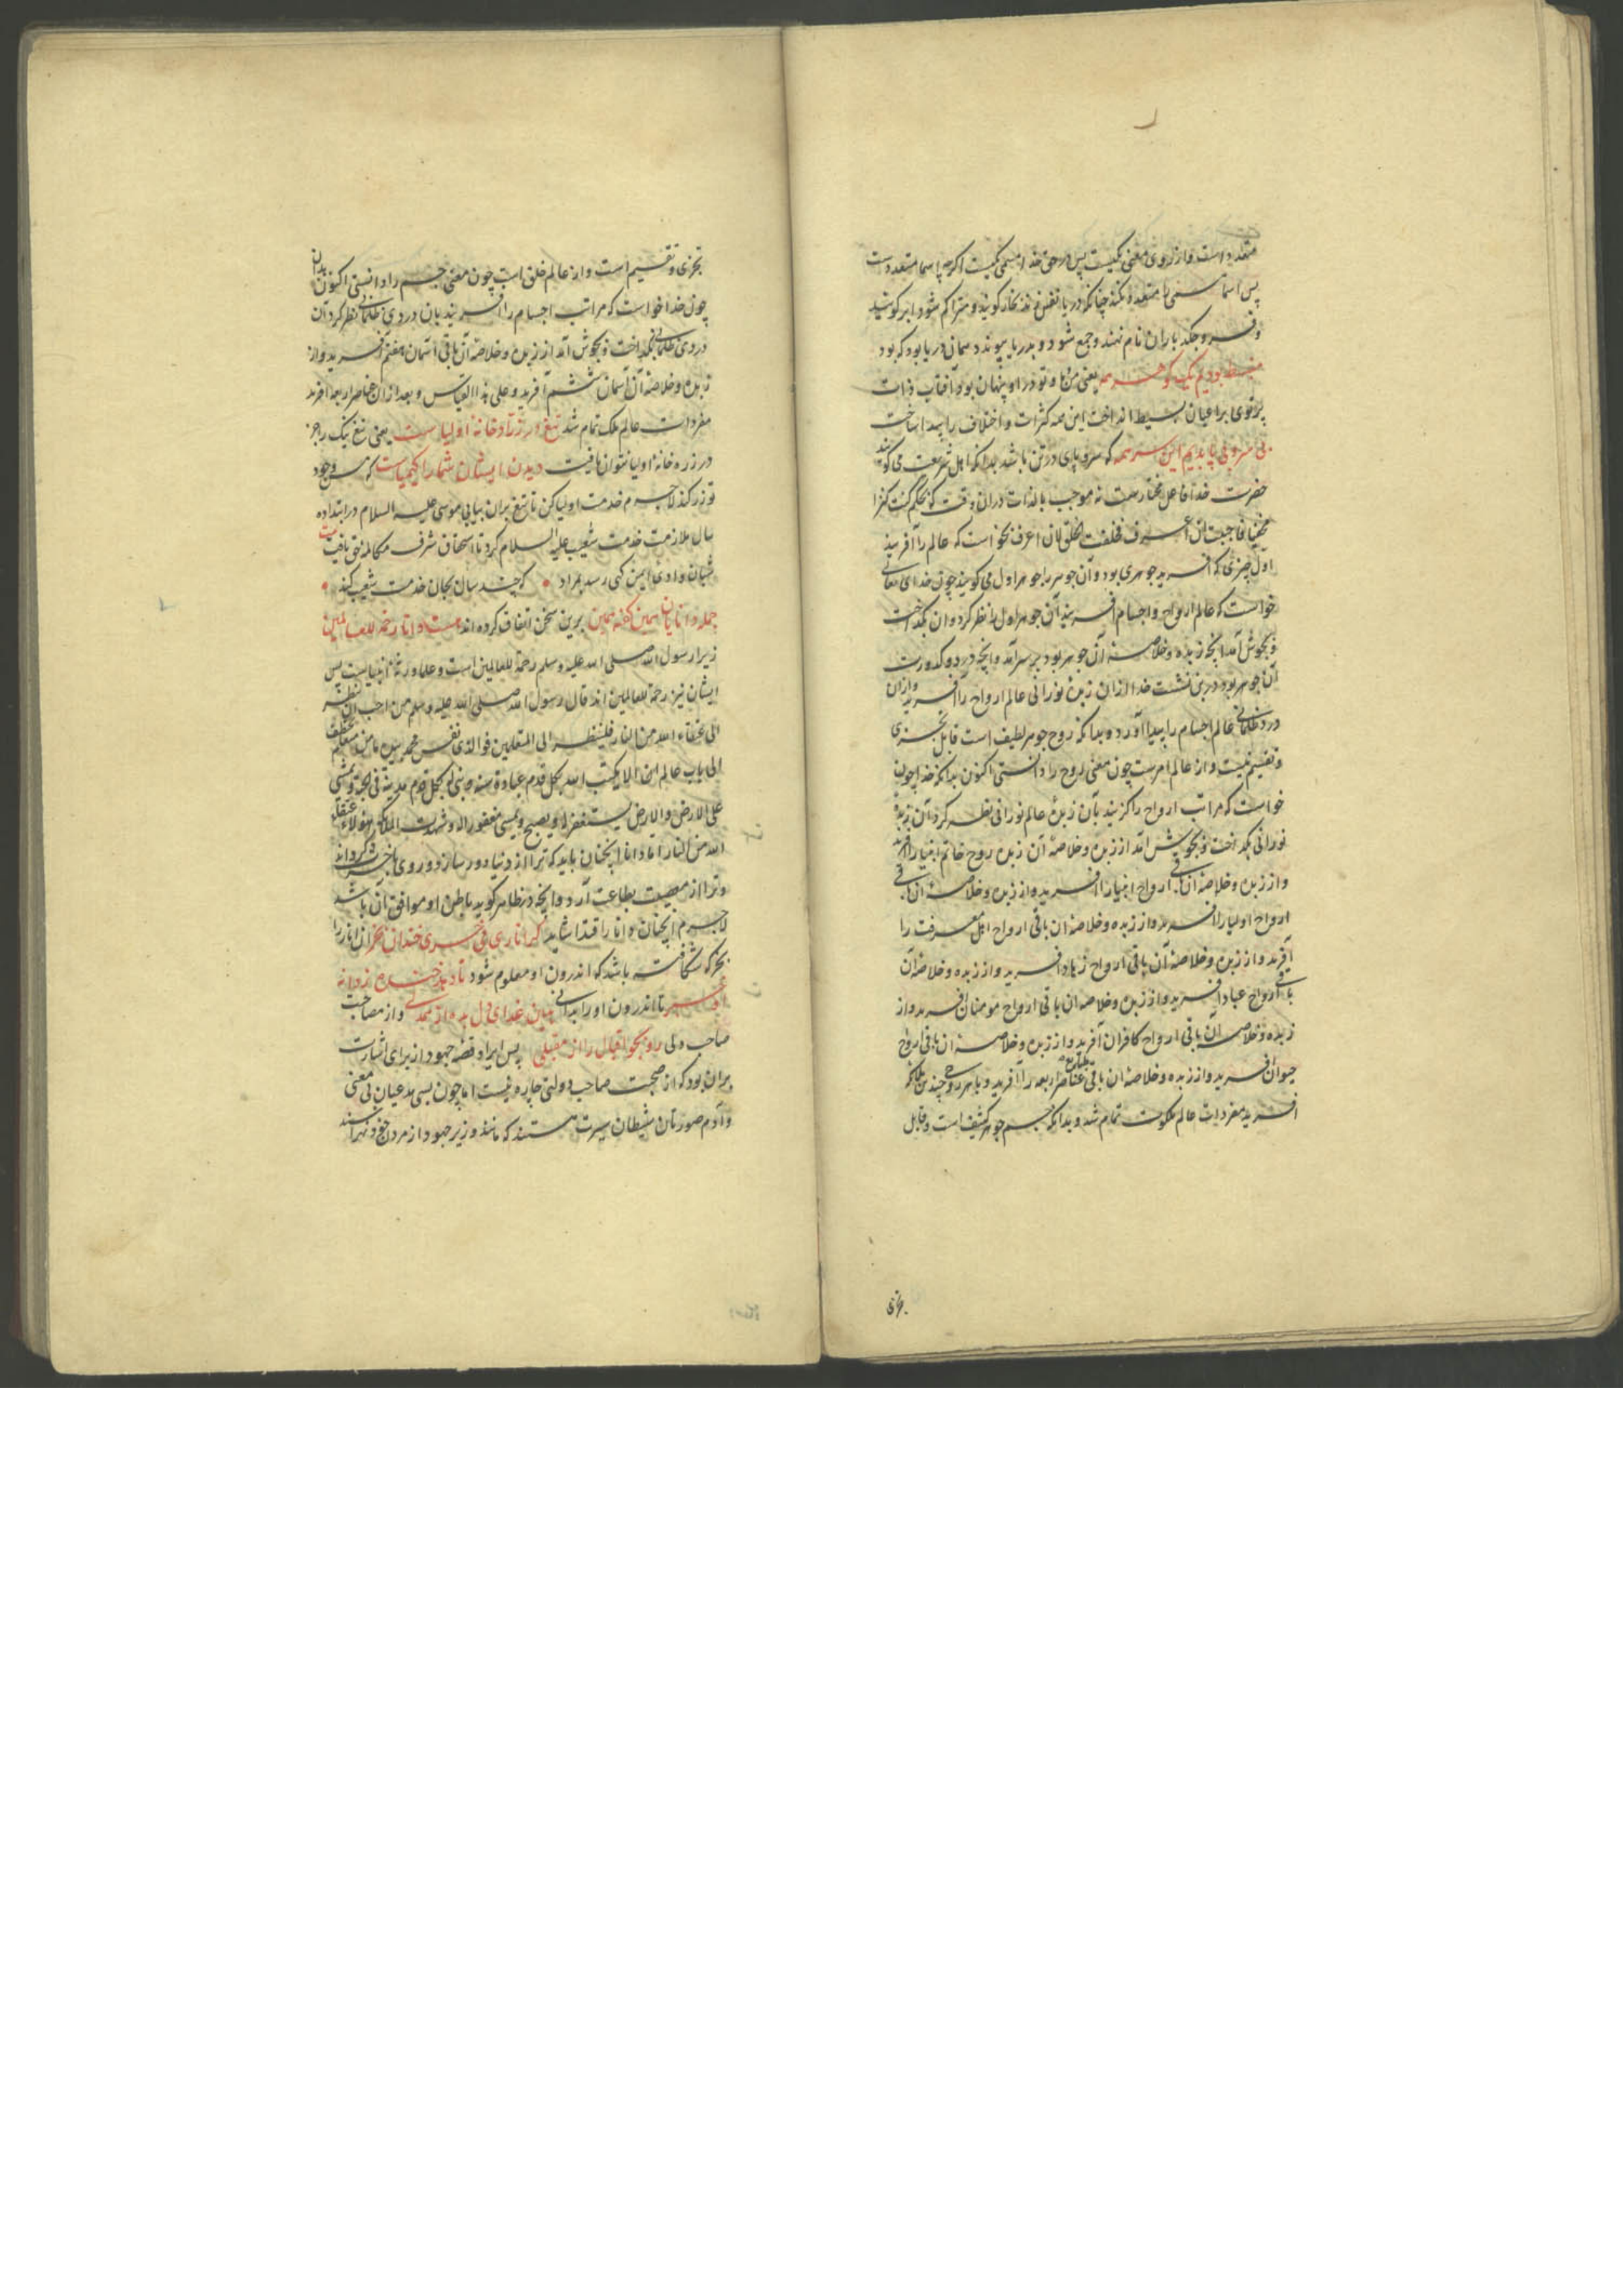 متعدد است و از روی معنی یکیست پس در حق خدا مسمی یکیست اگرچه باسما متعددست
پس اسما مسمی را متعدد نکند چنانکه دریا نفس زند بخار گویند و متراکم شود ابر گویند
و فرو چکد باران نام نهند و جمع شود و بدریا پیوندد همان دریا بود که بود
منبسط بودیم یک گوهر همه یعنی من و ما و تو در او پنهان بود آفتاب ذات
پرتوی بر اعیان بسیط انداخت این همه کثرات و اختلاف را پیدا ساخت
بی سر و بی پا بدیم آن سر همه که سر و پای در تن باشد بدانکه اهل شریعت می گویند
حضرت خدا فاعل مختارست نه موجب بالذات در آن وقت که بحکم کنت کنزا
مخفیا فاحببت ان اعرف فخلقت الخلق لان اعرف بخواست که عالم را آفریند
اول چیزی که آفرید جوهری بود و آن جوهر را جوهر اول می گویند چون خدای تعالی
خواست که عالم ارواح و اجسام آفریند بآن جوهر اول نظر کرد و آن بگداخت
و بجوش آمد آنچه زبده و خلاصه آن جوهر بود بر سر آمد و آنچه درد و کدورت
آن جوهر بود در بن نشست خدا از آن زبده نورانی عالم ارواح را آفرید و از آن
درد ظلمانی عالم اجسام را پیدا آورد و بدانکه روح جوهر لطیف است قابل تجزی
و تقسیم نیست و از عالم امرست چون معنی روح را دانستی اکنون بدانکه خدا چون
خواست که مراتب ارواح را گزیند بآن زبده عالم نورانی نظر کرد آن زبده
نورانی بگداخت و بجوش آمد از زبده و خلاصه آن زبده روح خاتم انبیا را آفرید
و از زبده و خلاصه آن باقی ارواح انبیا را آفرید و از زبده و خلاصه آن باقی
ارواح اولیا را آفرید و از زبده و خلاصه آن باقی ارواح اهل معرفت را
آفرید و از زبده و خلاصه آن باقی ارواح زهاد آفرید و از زبده و خلاصه آن
باقی ارواح عباد آفرید و از زبده و خلاصه آن باقی ارواح مومنان آفرید و از
زبده و خلاصه آن باقی ارواح کافران آفرید و از زبده و خلاصه آن باقی ارواح
حیوان آفرید و از زبده و خلاصه آن باقی طبایع عناصر اربعه را آفرید و با هر روحی چندین ملائکه
آفرید مفردات عالم ملکوت تمام شد و بدانکه جسم جوهر کثیف است و قابل
تجزی
تجزی و تقسیم است و از عالم خلق است چون معنی جسم را دانستی اکنون بدان
چون خدا خواست که مراتب اجسام را آفریند بآن دردی ظلمانی نظر کرد آن
دردی ظلمانی بگداخت و بجوش آمد از زبده و خلاصه آن باقی آسمان هفتم آفرید و از
زبده و خلاصه آن آسمان ششم آفرید و علی هذا القیاس و بعد از آن عناصر اربعه آفرید
مفردات عالم ملک تمام شد تیغ در زرادخانه اولیاست یعنی تیغ نیک را جز
در زره خانه اولیا نتوان یافت دیدن ایشان شمارا کیمیاست که مس وجود
تو زر کند لاجرم خدمت اولیا کن تا تیغ بران بیابی موسی علیه السلام در ابتدا ده
سال ملازمت خدمت شعیب علیه السلام کرد تا استحقاق شرف مکالمه حق یافت بیت
شبان وادی ایمن گهی رسد بمراد • که چند سال بجان خدمت شعیب کند •
جمله دانایان همین گفته همین برین سخن اتفاق کرده اند هست دانا رحمة للعالمین
زیرا رسول الله صلی الله علیه و سلم رحمة للعالمین است و علما ورثه انبیاست پس
ایشان نیز رحمة للعالمین اند قال رسول الله صلی الله علیه و سلم من احب ان ینظر
الی عتقاء الله من النار فلینظر الی المتعلمین فوالذی نفس محمد بیده ما من متعلم یختلف
الی باب عالم الا یکتب الله بکل قدم عبادة سنة و بنی له بکل قدم مدینة فی الجنة و یمشی
علی الارض والارض یستغفر له و یصبح و یمسی مغفورا له و شهدت الملائکة هولاء عتقاء
الله من النار اما دانا آنچنان باید که ترا از دنیا دور سازد و روی بآخرت گرداند
و ترا از معصیت بطاعت آرد و آنچه در ظاهر گوید باطن او موافق آن باشد
لاجرم اینچنان دانا را اقتدا شاید گر اناری می خری خندان بخر آن انار را
بخر که شکافته باشد که اندرون او معلوم شود تا دهد خنده ز دانه
او خبر تا اندرون او را بدانی هین غذای دل بده از همدلی و از مصاحبت
صاحب دلی رو بجو اقبال را از مقبلی پس ایراد قصه جهود از برای اشارت
بر آن بود که از صحبت صاحب دولتی چاره نیست اما چون بسی مدعیان بی معنی
و آدم صورتان شیطان سیرت هستند که مانند وزیر جهود از مردن خود نهراسند